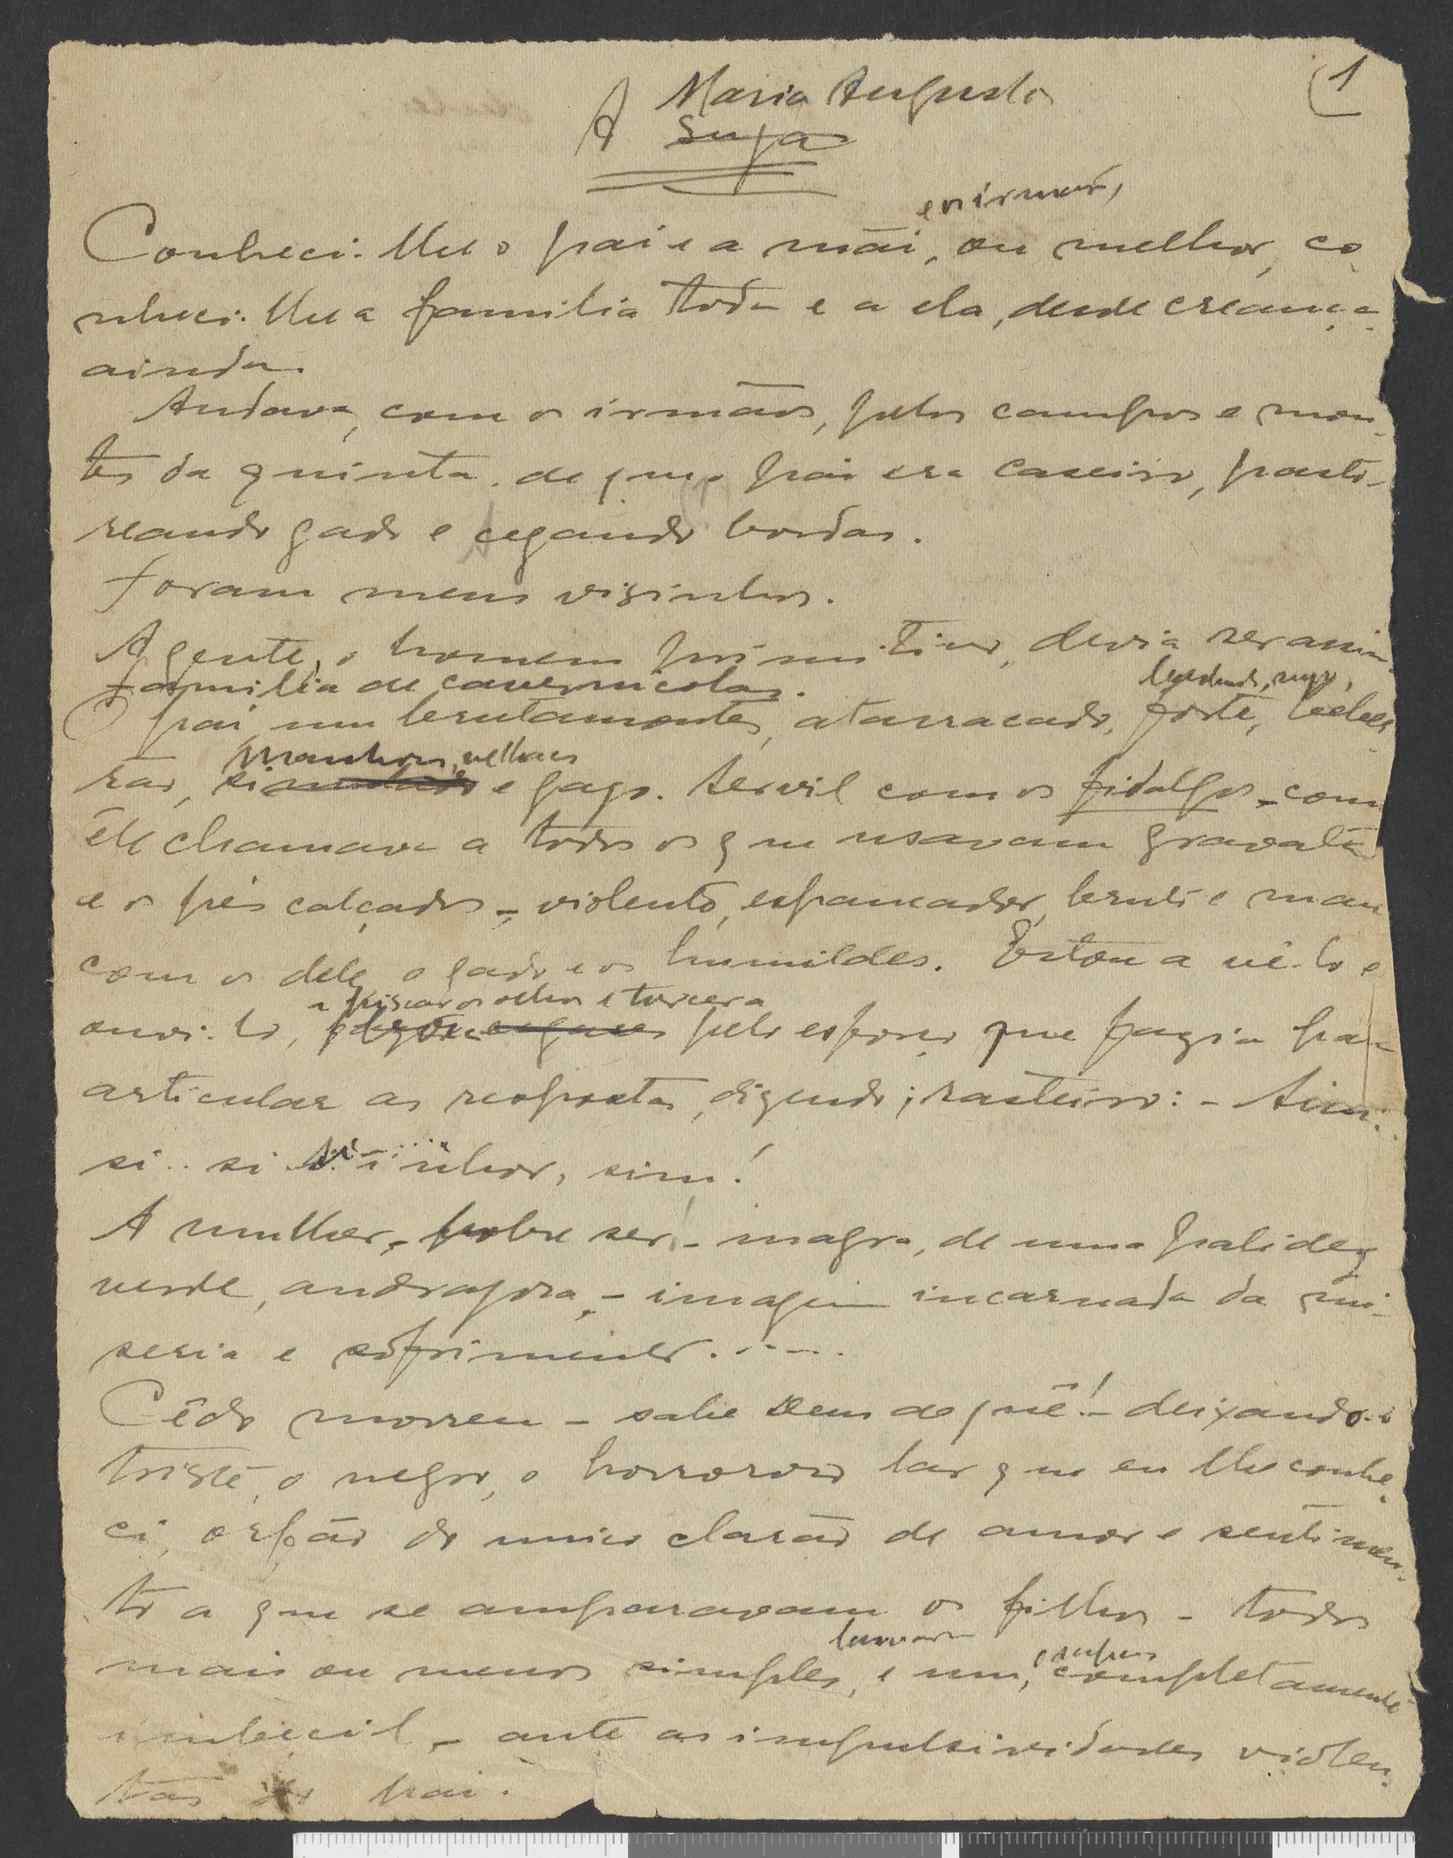 1
A Maria Augusta
Suja
e os irmãos,
Conheci-lhe o pai e a mãi, ou melhor, co
nheci-lhe a familia toda e a ela, desde creança
ainda.
Andava, com os irmãos, pelos campos e mon-
tes da quinta de que o pai era caseiro, pasto-
reando gado e cegando bordas.
Foram meus visinhos.
A gente, o homem primitivo, devia ser assim.
Familia de cavernicolas.
O pai, um brutamontes, atarracado, forte,
manhoso, velhaco
rão, e gago. Servil com os fidalgos - como
êle chamava a todos os que usavam gravata
e os pés calçados -, violento, espancador, bruto e mau
com os dele, o gado e os humildes. Estou a vê-lo e
a piscar os olhos e torcer a
ouvi-lo, pelo esforço que fazia para
articular as respostas, dizendo, rasteiro: - Sim..
si.. si.. nhor, sim!
A mulher, - pobre ser! - magra, de uma palidez
verde, andrajosa, - imagem incarnada da mi-
seria e sofrimento.....
Cêdo morreu - sabe Deus de quê! - deixando o
triste, o negro, o horroroso lar que eu lhe conhe-
ci, orfão do unico clarão de amor e sentimen-
to a que se amparavam os filhos - todos
mais ou menos simples, e um, completamente
imbecil - ante as impulsividades violen-
tas do pai.